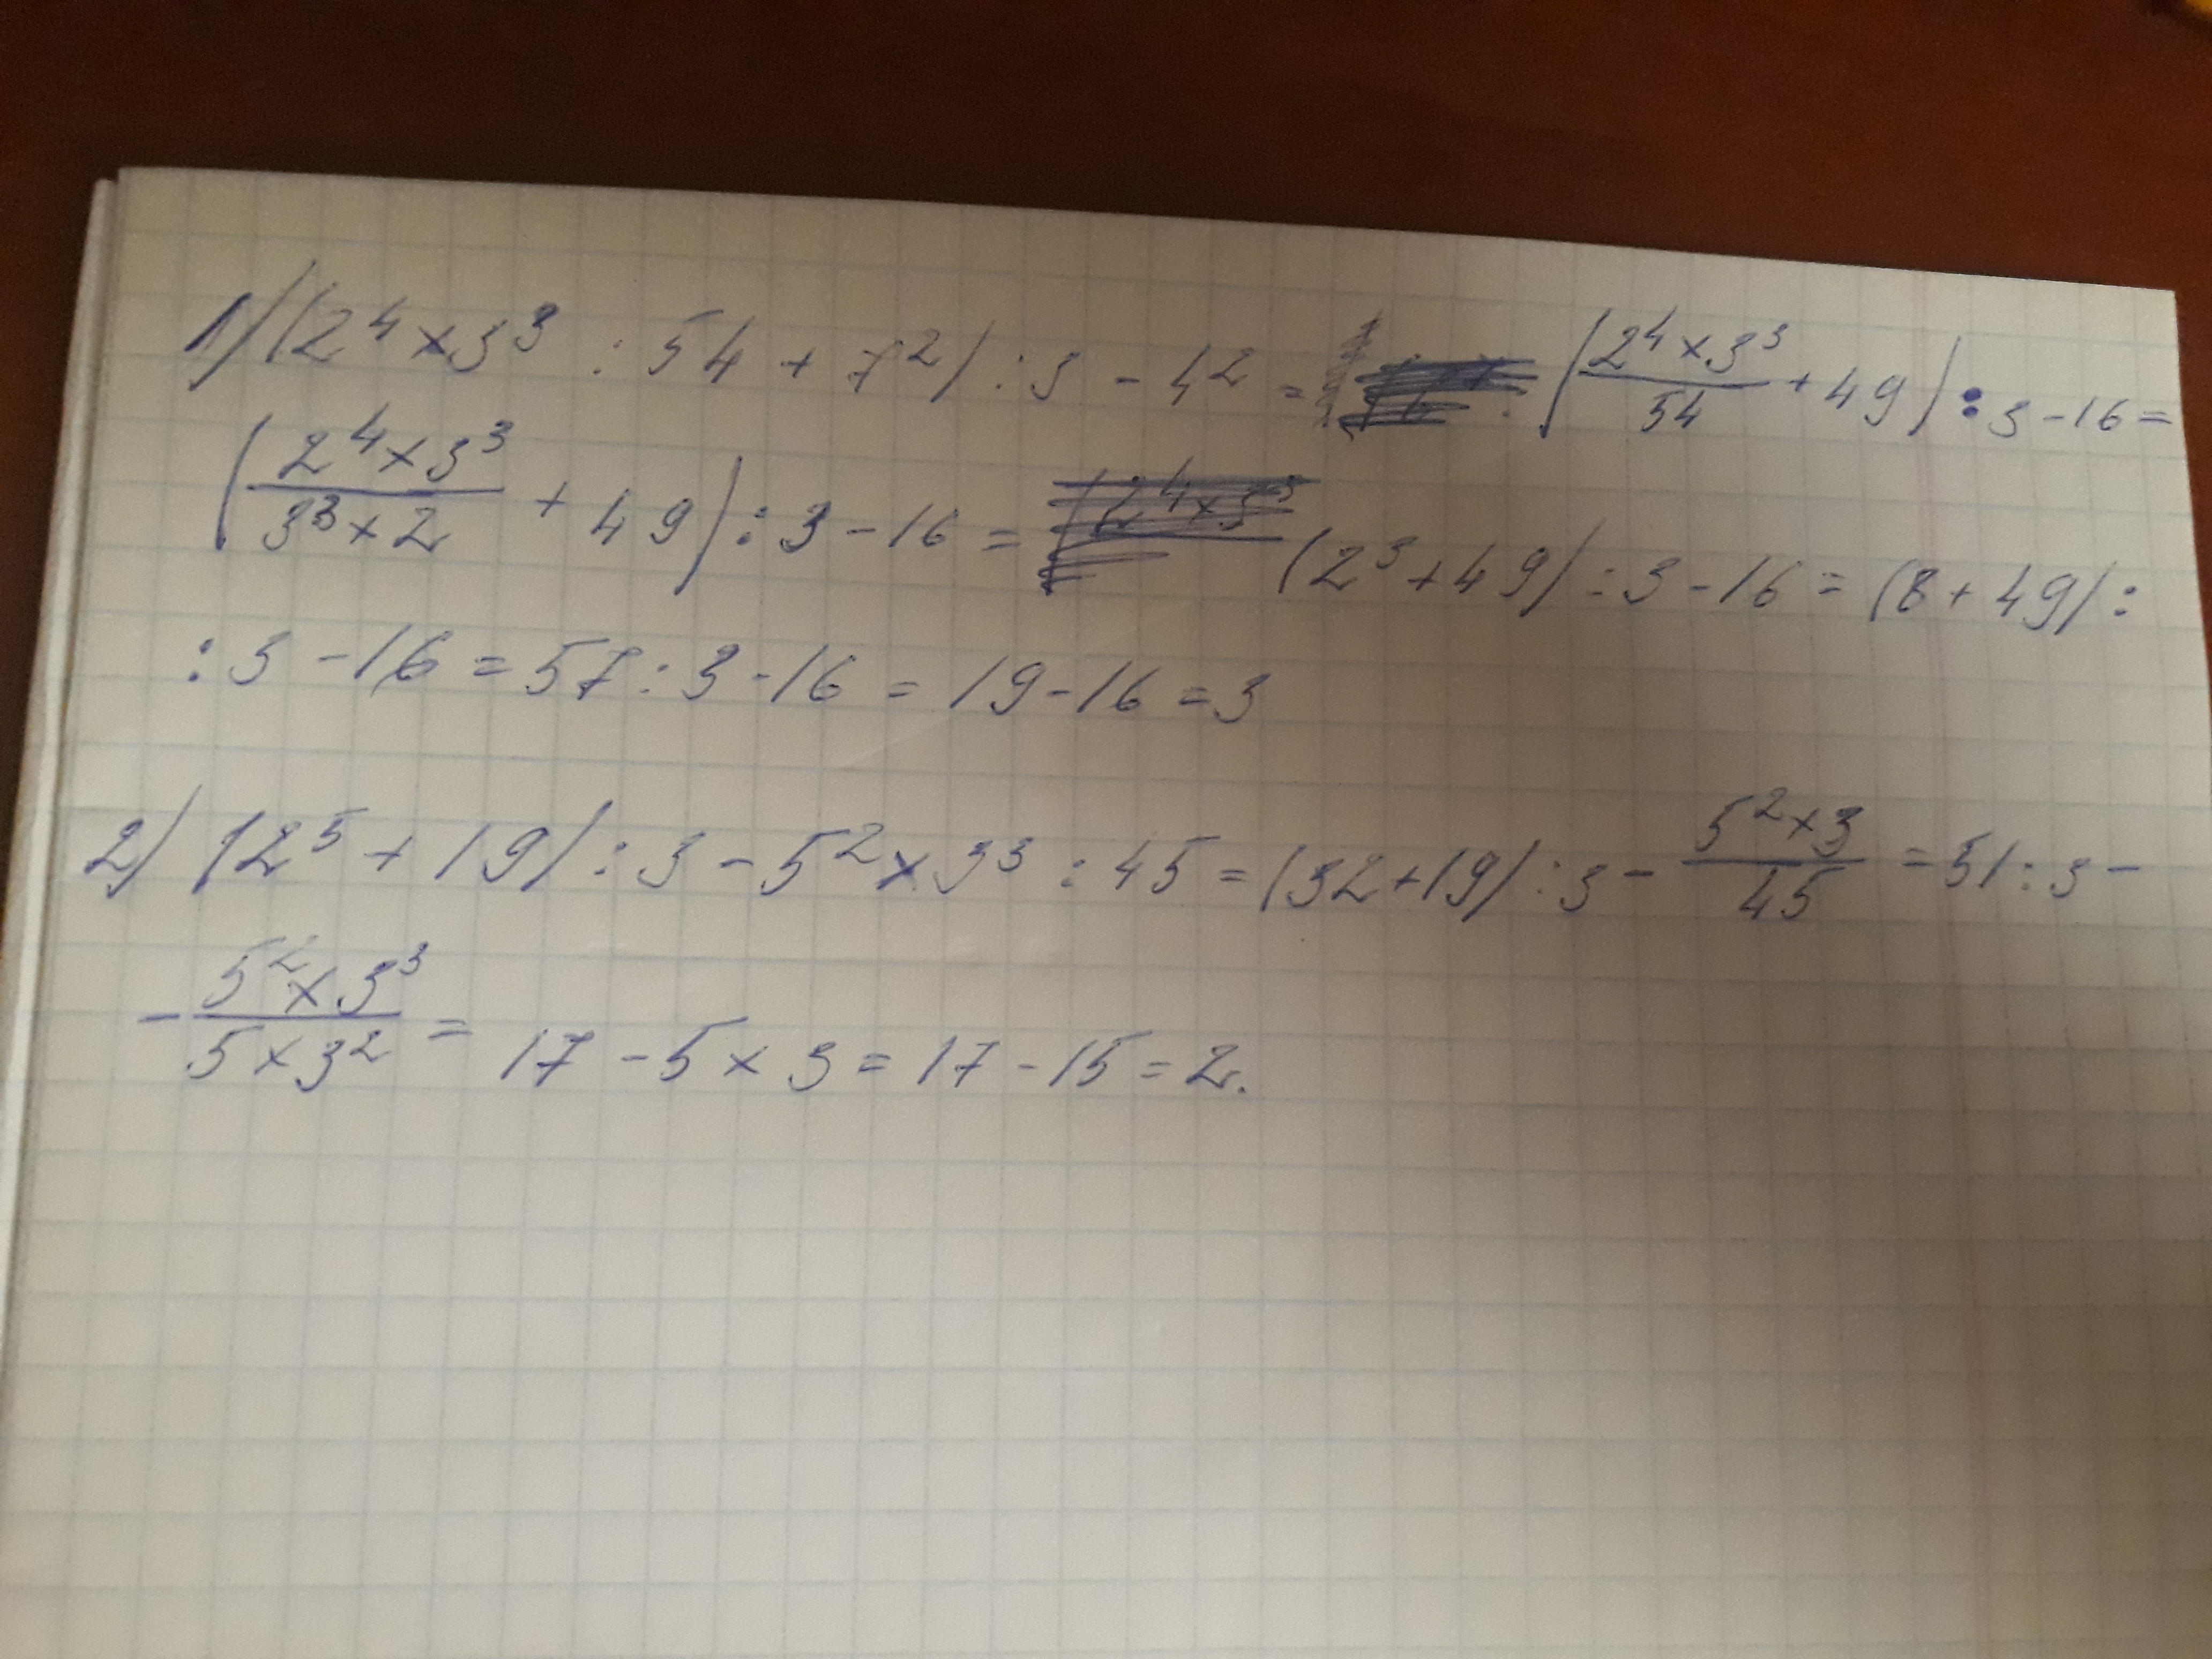 1) (2⁴ × 3³ : 54 + 7²) : 3 - 4² = (2⁴ × 3³/54 + 49) : 3 - 16 =
(2⁴ × 3³/3³ × 2 + 49) : 3 - 16 = (2³ + 49) : 3 - 16 = (8 + 49) :
: 3 - 16 = 57 : 3 - 16 = 19 - 16 = 3
2) (2⁵ + 19) : 3 - 5² × 3³ : 45 = (32 + 19) : 3 - 5² × 3/45 = 51 : 3 -
- 5² × 3³/5 × 3² = 17 - 5 × 3 = 17 - 15 = 2.